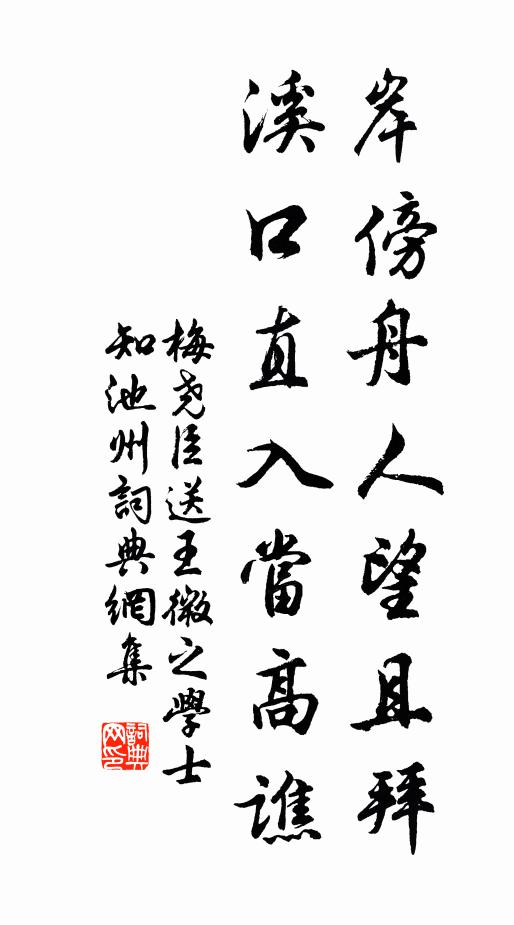 岸傍舟人望且拜
溪口直入當高譙
梅尧臣送王微之學士
知池州詞典網集
詞典网印